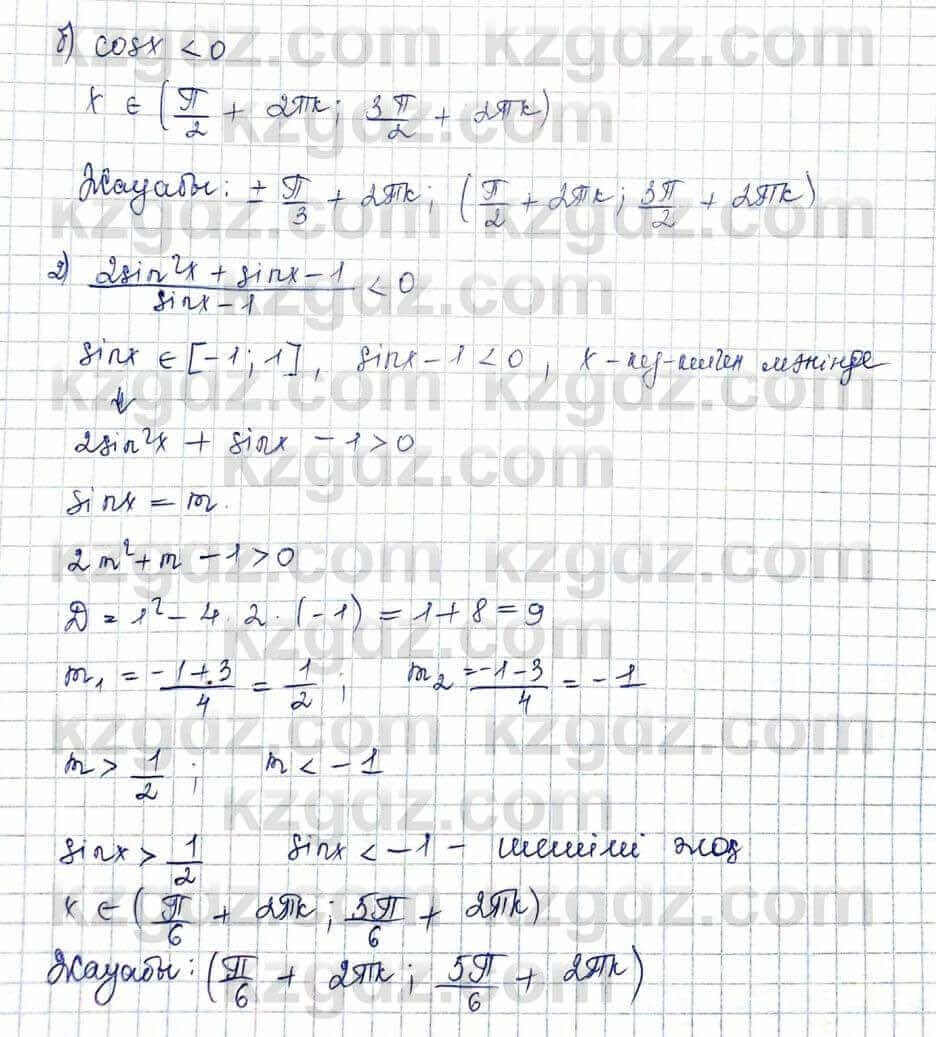 б) cosx < 0
x ∈ (π/2 + 2πk; 3π/2 + 2πk)
Жауабы: ± π/3 + 2πk; (π/2 + 2πk; 3π/2 + 2πk)
2) (2sin²x + sinx − 1)/(sinx − 1) < 0
sinx ∈ [−1; 1], sinx − 1 < 0, x - кез-келген мәнінде
↓
2sin²x + sinx − 1 > 0
sinx = m.
2m² + m − 1 > 0
D = 1² − 4 · 2 · (−1) = 1 + 8 = 9
m₁ = (−1 + 3)/4 = 1/2; m₂ = (−1 − 3)/4 = −1
m > 1/2; m < −1
sinx > 1/2 sinx < −1 − шешімі жоқ
x ∈ (π/6 + 2πk; 5π/6 + 2πk)
Жауабы: (π/6 + 2πk; 5π/6 + 2πk)
kzgdz.com